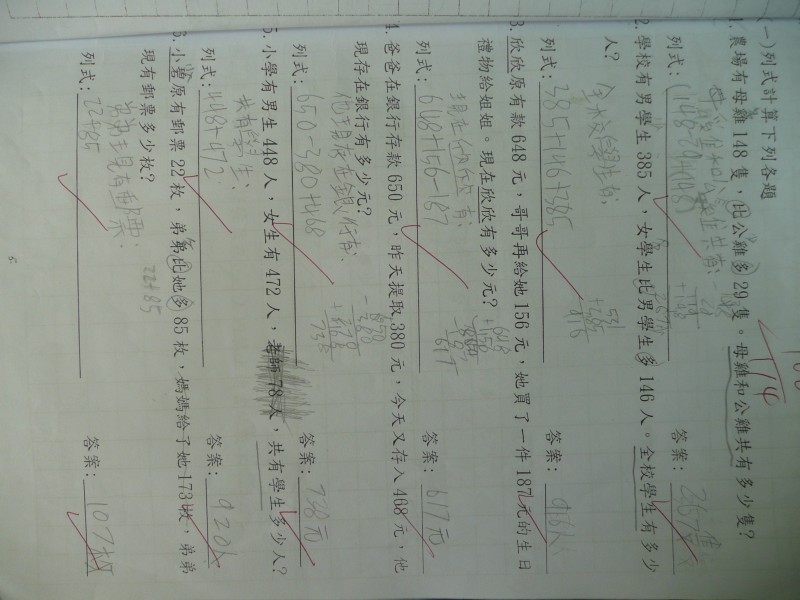 (一)列式計算下列各題
1. 農場有母雞148隻，比公雞多29隻。母雞和公雞共有多少隻？
母雞和公雞共有：
列式：(148-29)+148
答案：267隻
2. 學校有男學生385人，女學生比男學生多146人。全校學生有多少
人？
全校學生有：
列式：385+146+385
531
+385
916
答案：916人
3. 欣欣原有款648元，哥哥再給她156元，她買了一件187元的生日
禮物給姐姐。現在欣欣有多少元？
現在欣欣有：
列式：648+156-187
617
答案：617元
4. 爸爸在銀行存款650元，昨天提取380元，今天又存入468元，他
現存在銀行有多少元？
他現存在銀行有：
列式：650-380+468
738
答案：738元
5. 小學有男生448人，女生有472人，老師78人，共有學生多少人？
共有學生：
列式：448+472
答案：920人
6. 小碧原有郵票22枚，弟弟比她多85枚，媽媽給了她173枚，弟弟
現有郵票多少枚？
弟弟現有郵票：
22+85
列式：22+85
答案：107枚